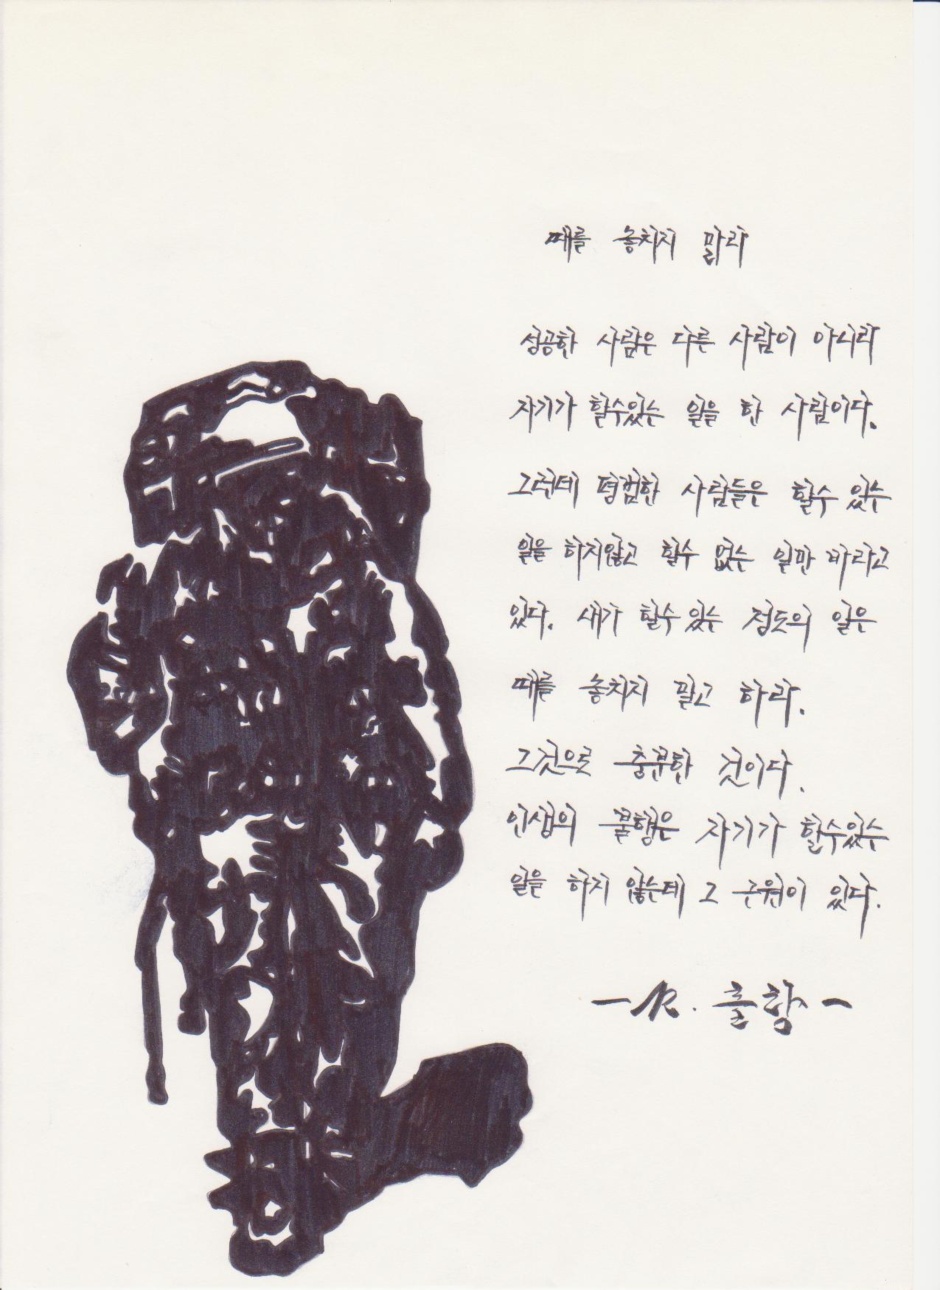 때를 놓치지 말라
성공한 사람은 다른 사람이 아니라
자기가 할수있는 일을 한 사람이다.
그런데 평범한 사람들은 할수 있는
일을 하지않고 할수 없는 일만 바라고
있다. 새가 할수있는 정도의 일은
때를 놓치지 말고 하라.
그것으로 충분한 것이다.
인생의 불행은 자기가 할수있는
일을 하지 않는데 그 근원이 있다.
-R. 롤랑-